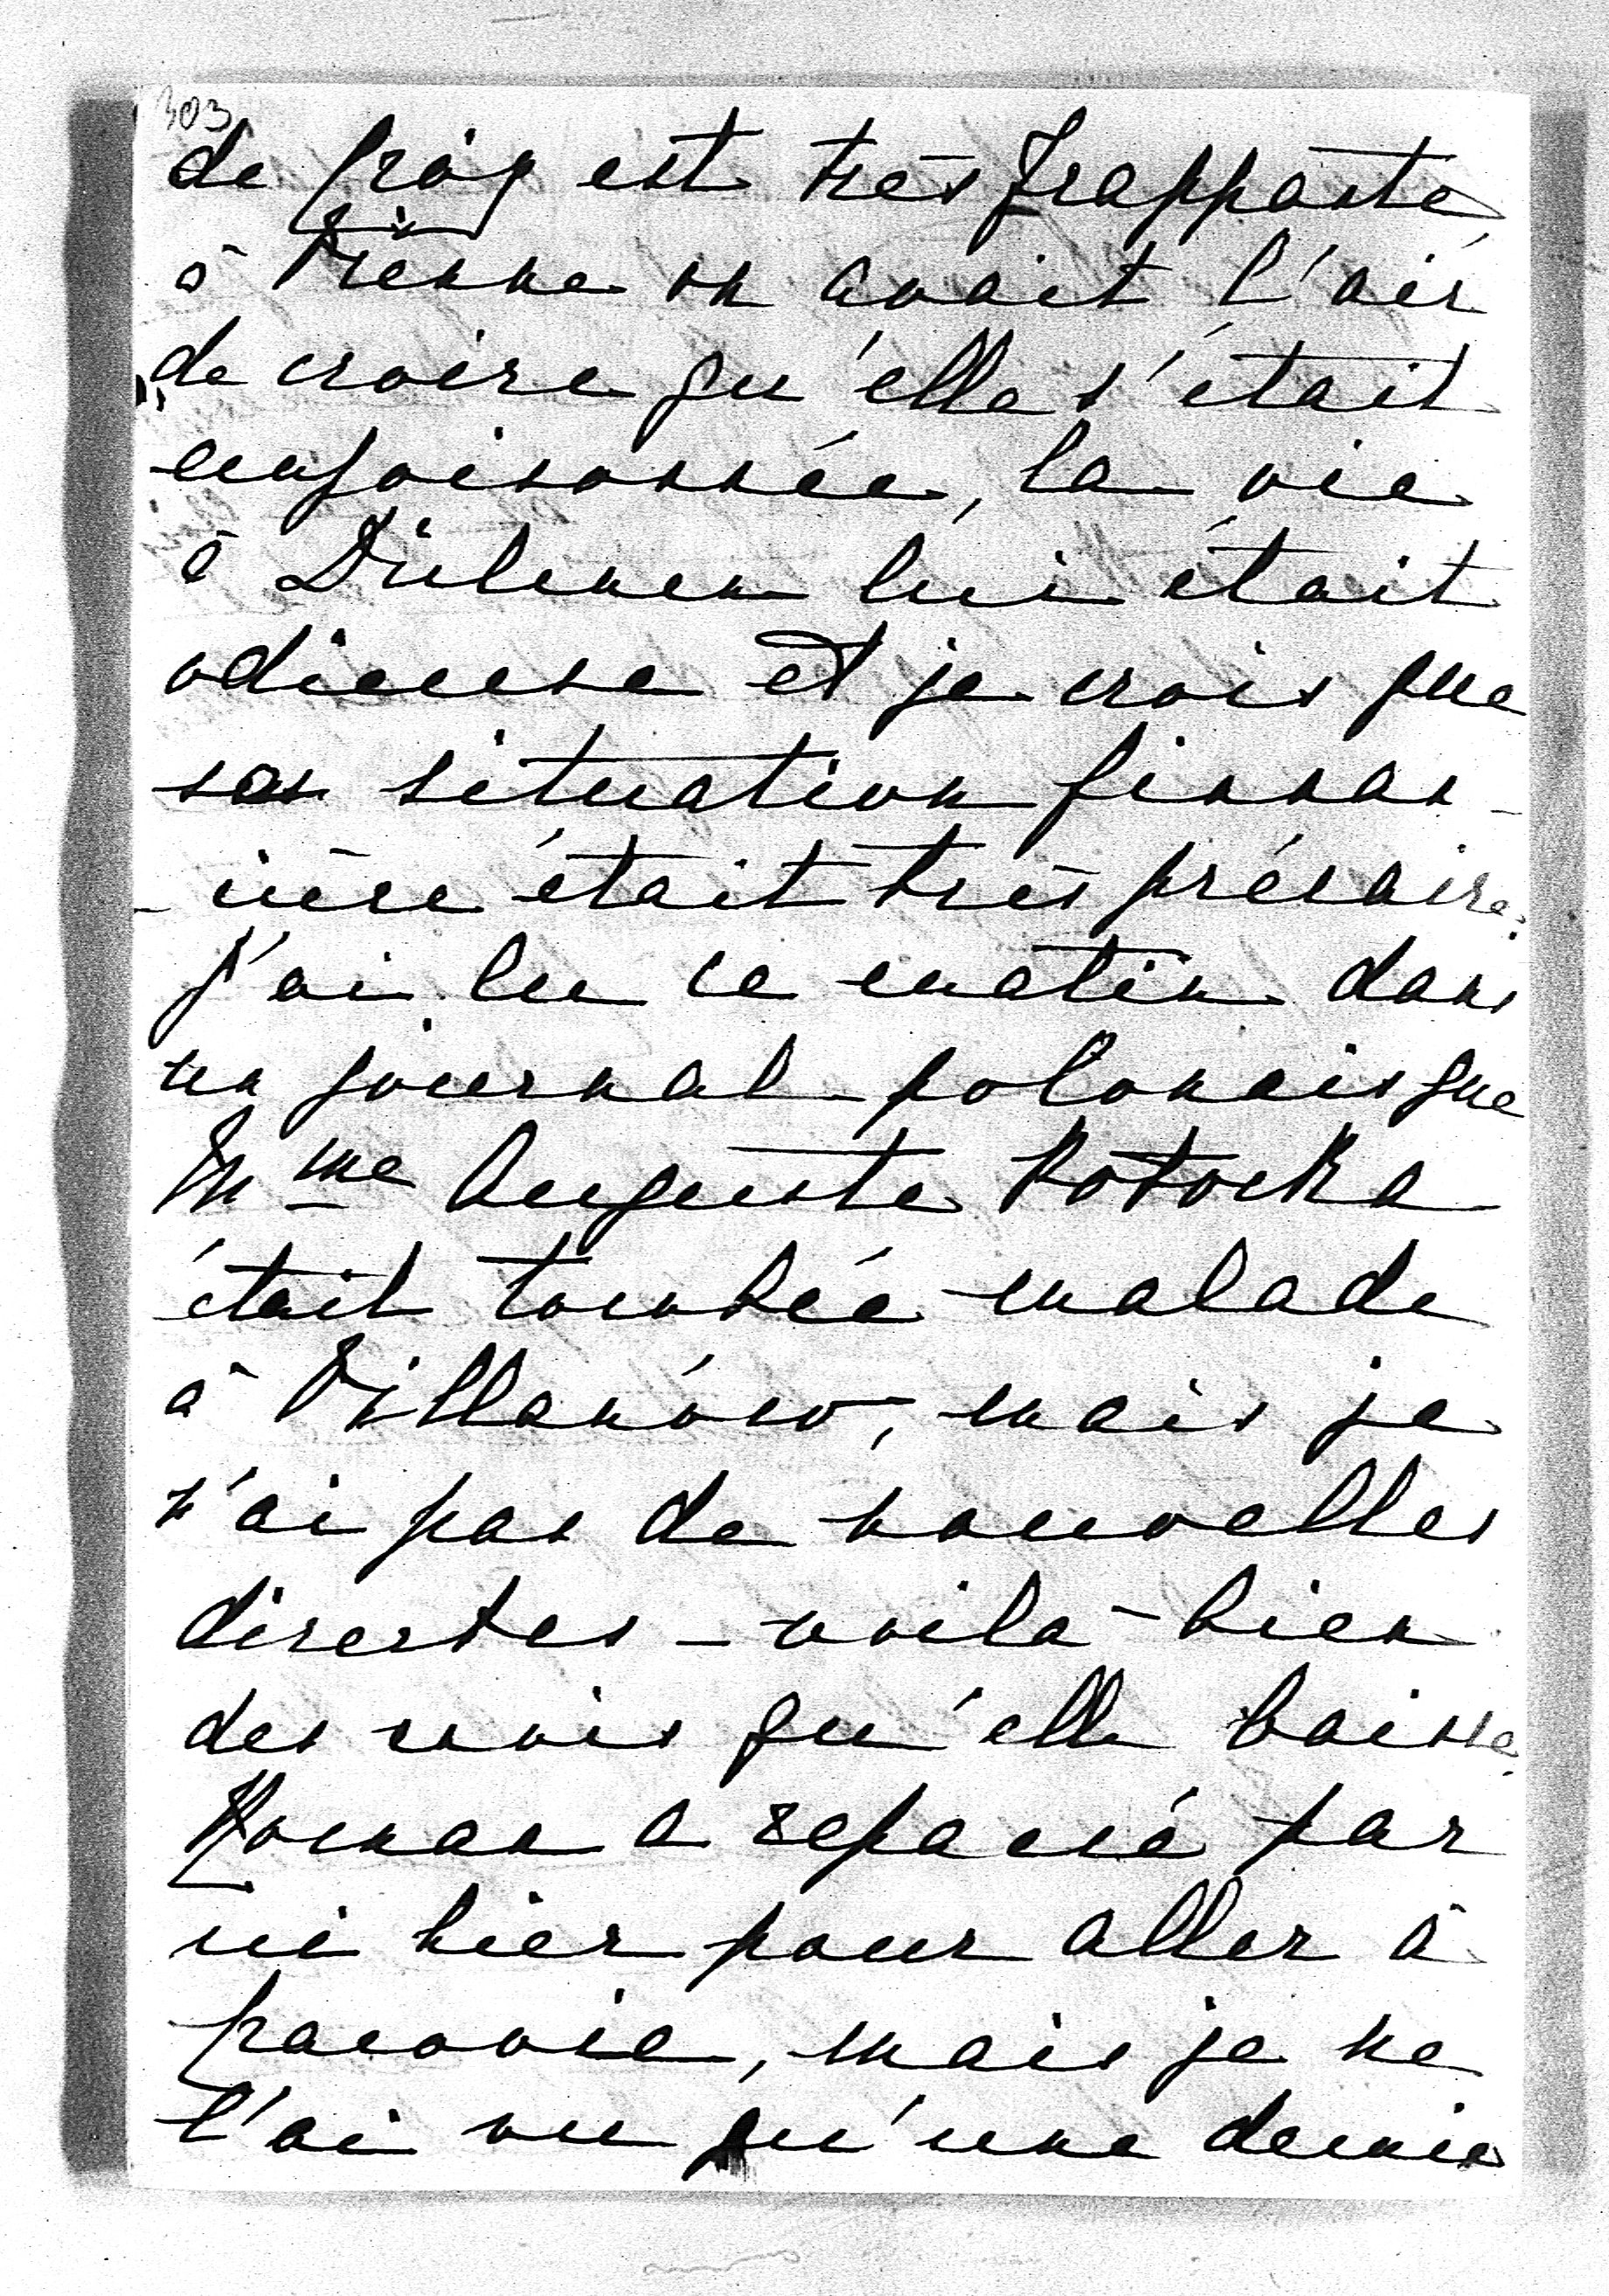 303
de Croÿ est très frappante
à Vienne on avait l'air
de croire qu'elle s'était
empoisonnée, la vie
à Dülmen lui était
odieuse et je crois que
sa situation finnan-
-cière était très précaire.
J'ai lu ce matin dans
un journal polonais que
Mme Auguste Potocka
était tombée malade
à Villanów, mais je
n'ai pas de nouvelles
directes – voilà bien
des mois qu'elle baisse.
Roman a repassé par
ici hier pour aller à
Cracovie, mais je ne
l'ai vu qu'une demie